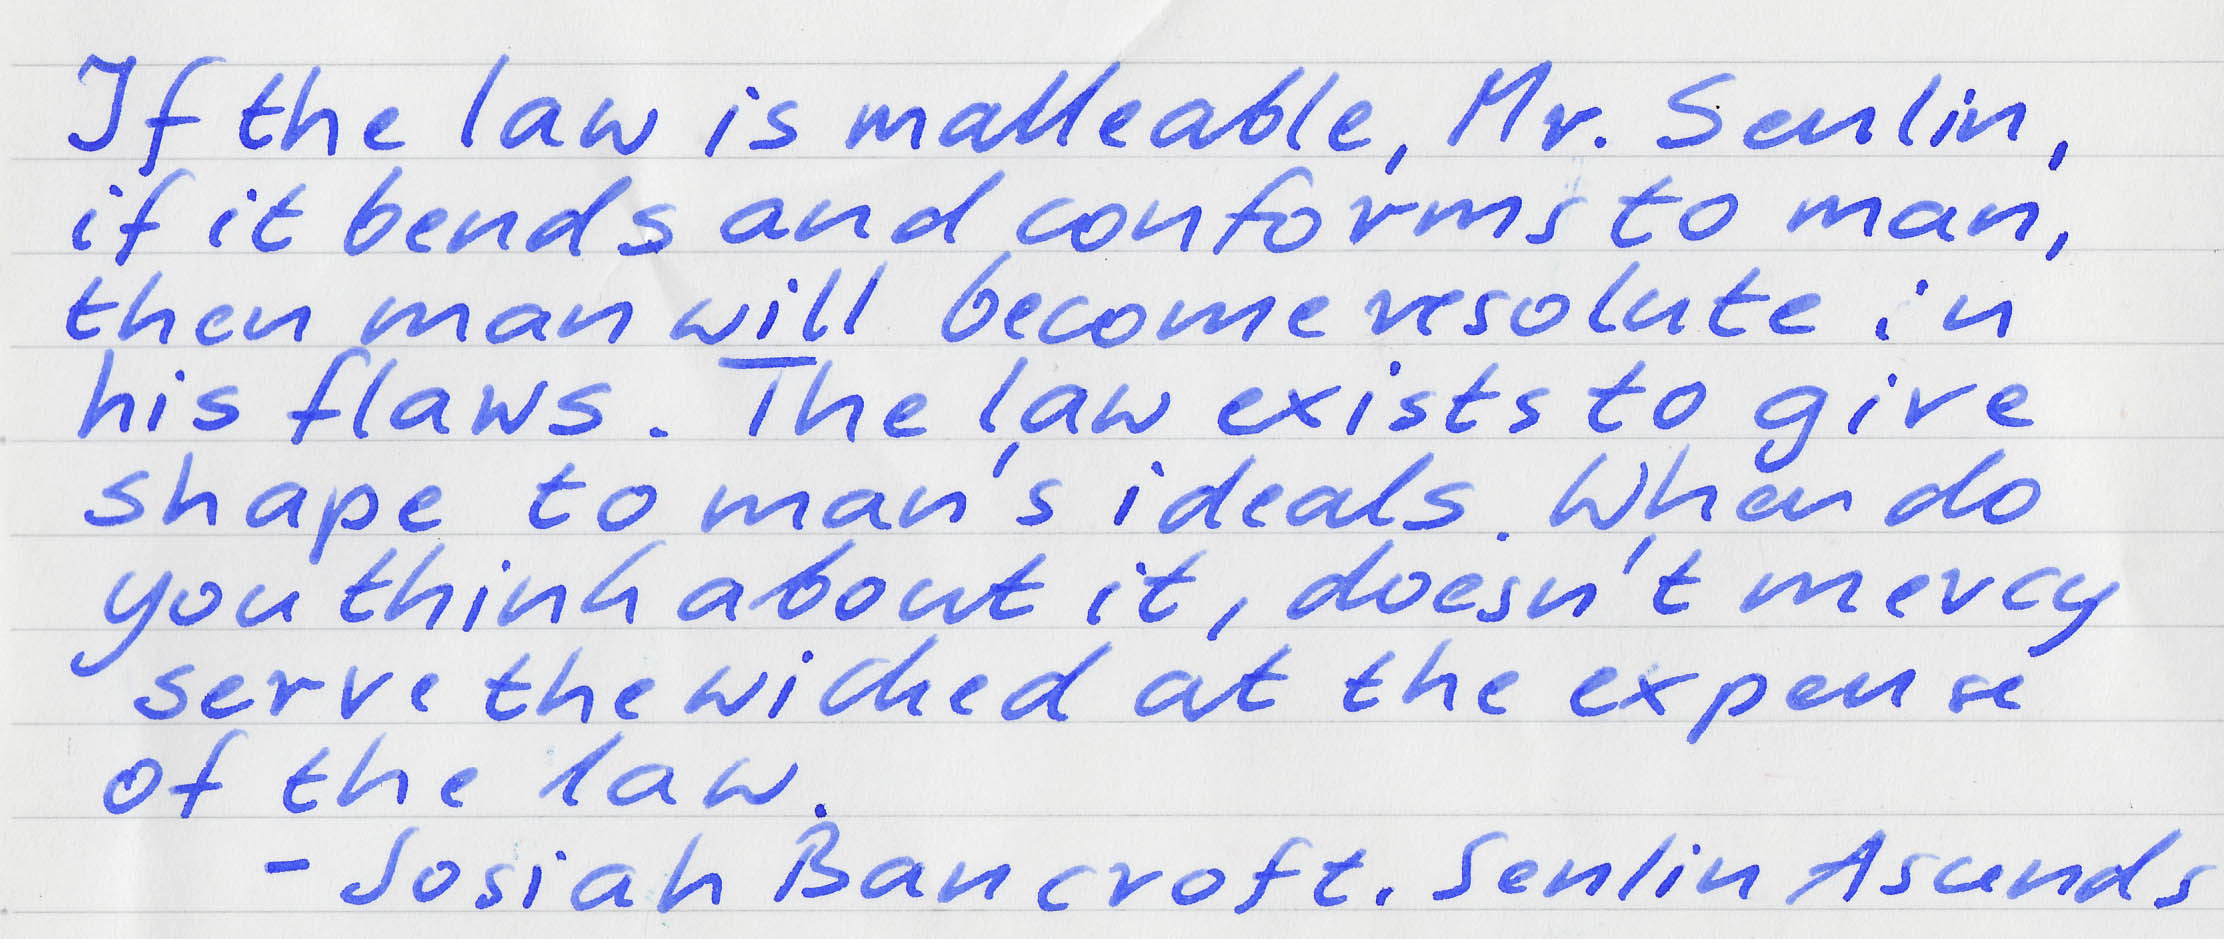 If the law is malleable, Mr. Senlin,
if it bends and conforms to man,
then man will become resolute in
his flaws. The law exists to give
shape to man's ideals. When do
you think about it, doesn't mercy
serve the wicked at the expense
of the law.
- Josiah Bancroft. Senlin Ascends